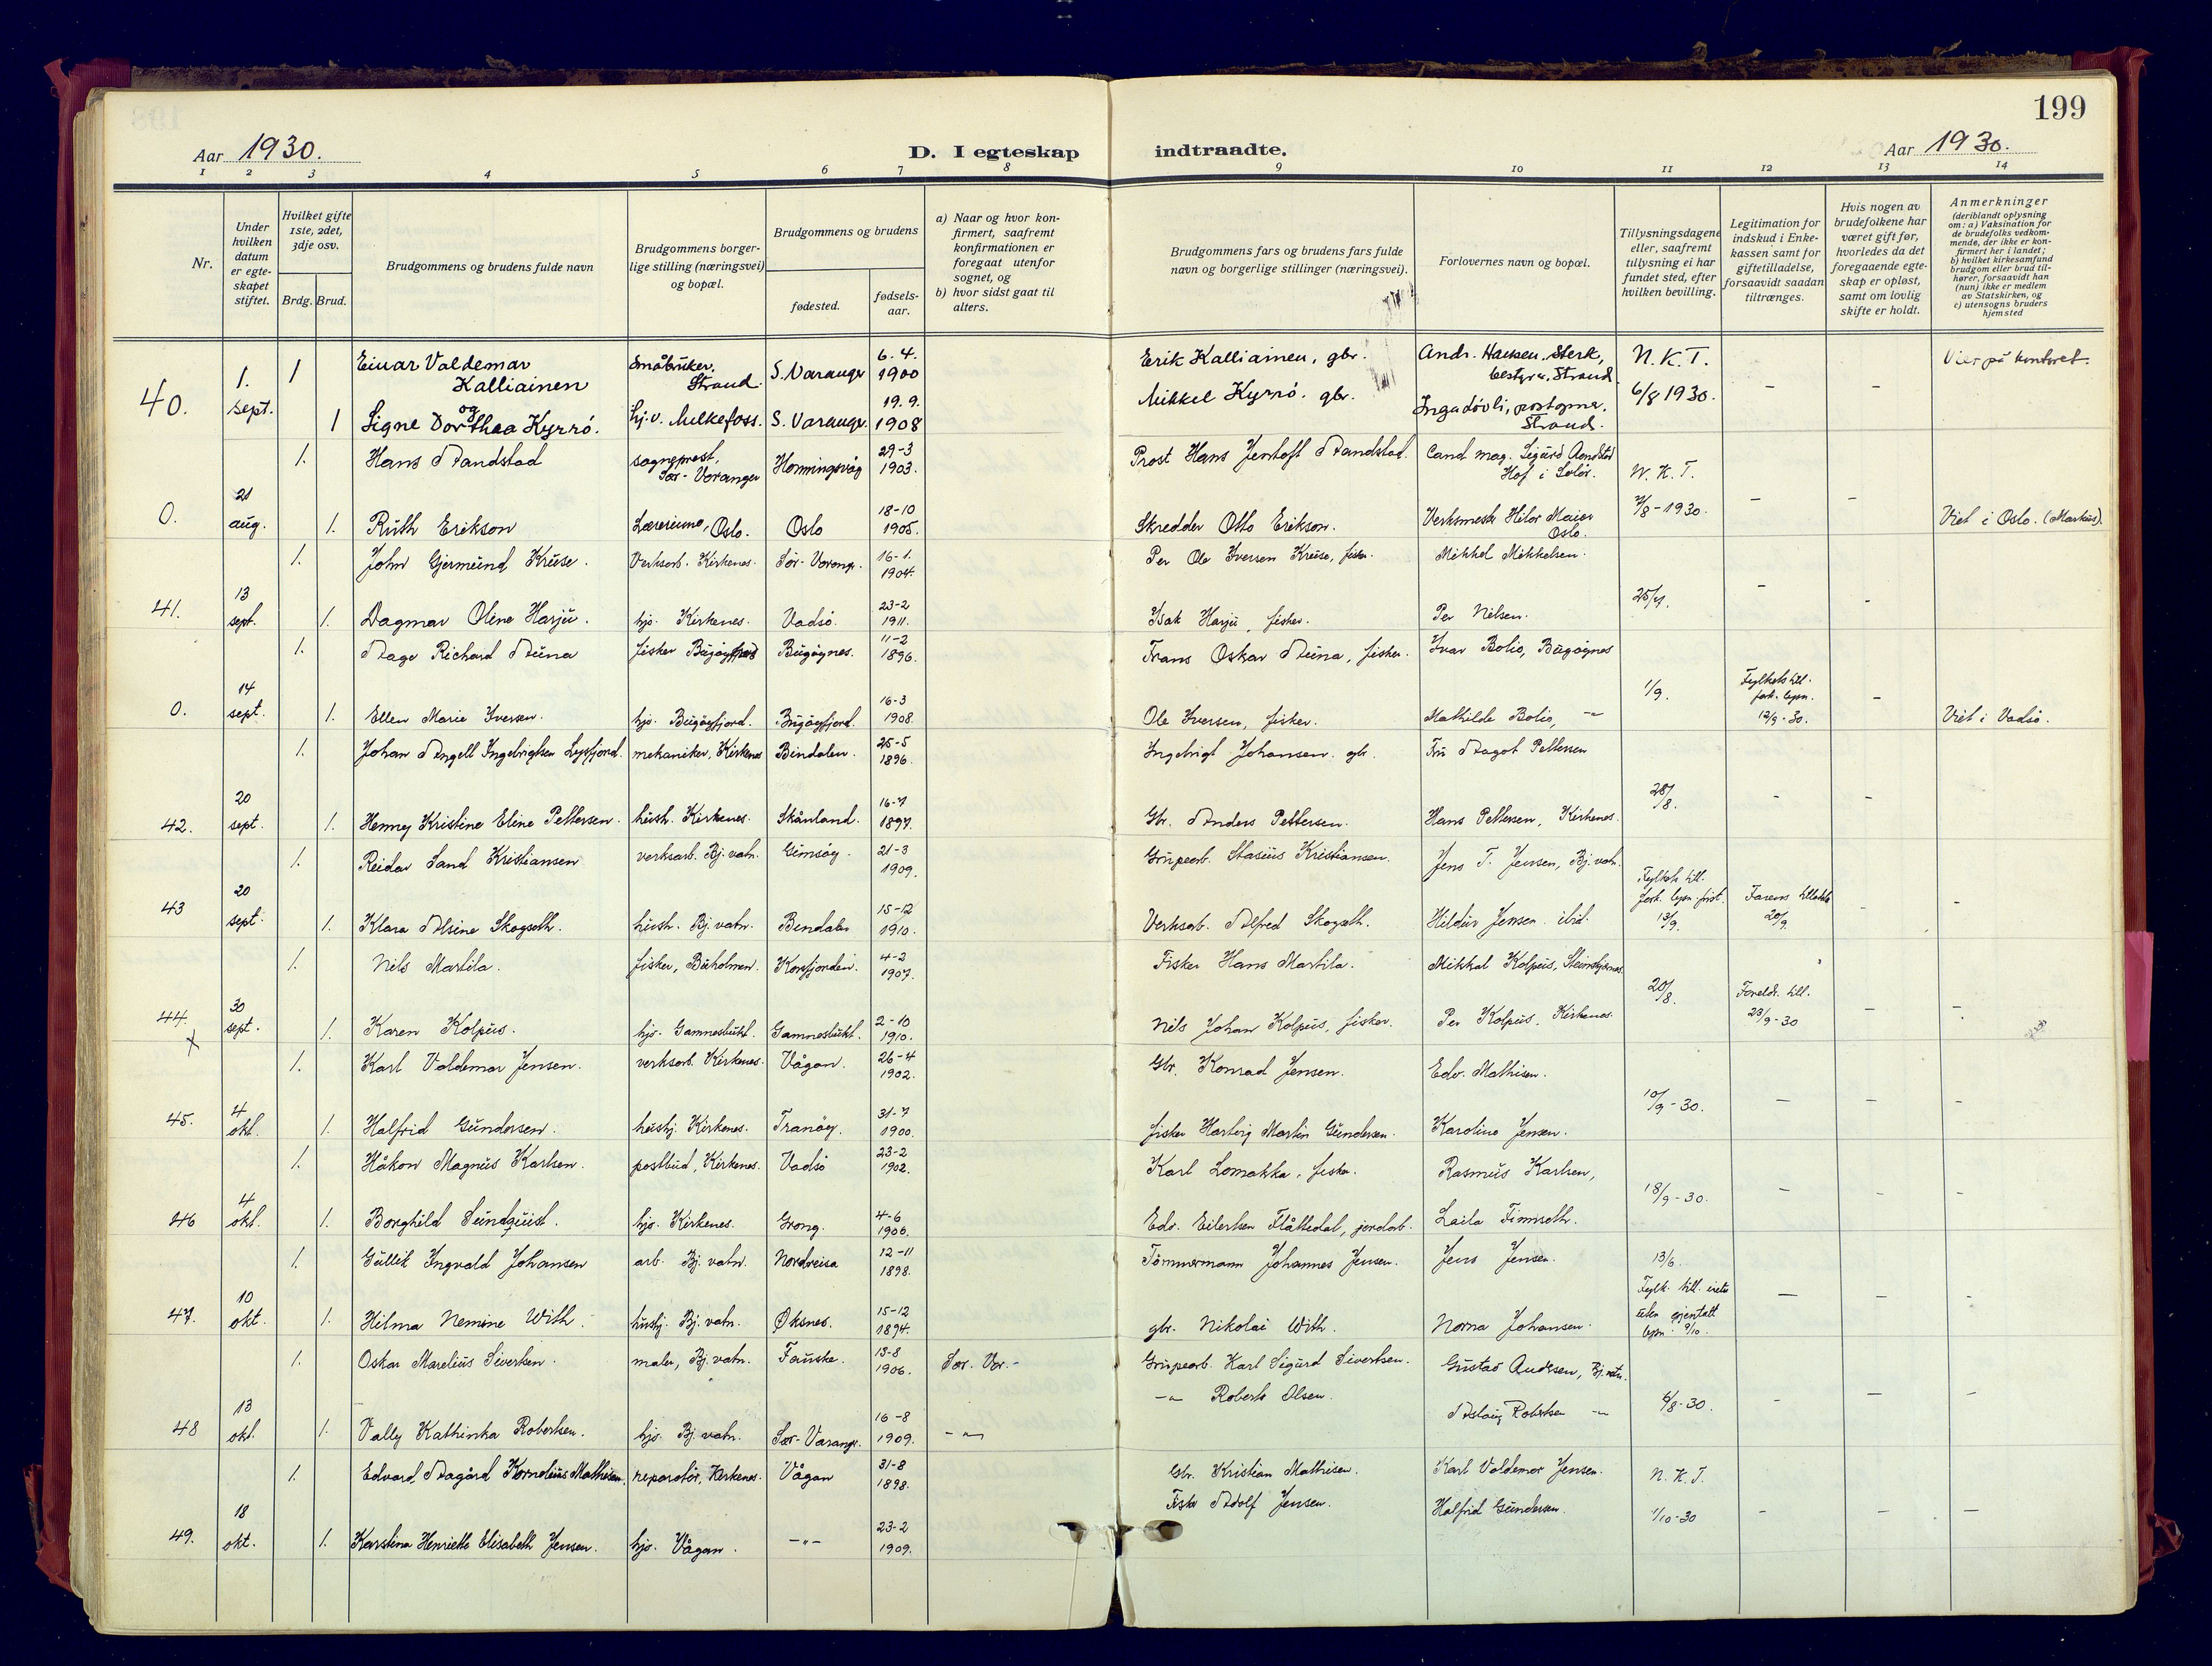 199
Aar 1930.
D. I egteskap indtraadte.
Aar 1930.
1 2 3 4 5 6 7 8 9 10 11 12 13 14
Nr.
Under hvilken datum er egteskapet stiftet.
Hvilket gifte 1ste, 2det, 3dje osv.
Brdg. Brud.
Brudgommens og brudens fulde navn
Brudgommens borgerlige stilling (næringsvei) og bopæl.
Brudgommens og brudens
fødested.
fødselsaar.
a) Naar og hvor konfirmert, saafremt konfirmationen er foregaat utenfor sognet, og
b) hvor sidst gaat til alters.
Brudgommens fars og brudens fars fulde navn og borgerlige stillinger (næringsvei).
Forlovernes navn og bopæl.
Tillysningsdagene eller, saafremt tillysning ei har fundet sted, efter hvilken bevilling.
Legitimation for indskud i Enkekassen samt for giftetilladelse, forsaavidt saadan tiltrænges.
Hvis nogen av brudefolkene har været gift før, hvorledes da det foregaaende egteskap er opløst, samt om lovlig skifte er holdt.
Anmerkninger
(deriblandt oplysning om: a) Vaksination for de brudefolks vedkommende, der ikke er konfirmert her i landet; b) hvilket kirkesamfund brudgom eller brud tilhører, forsaavidt han (hun) ikke er medlem av Statskirken, og c) utensogns bruders hjemsted
40. 1. sept. 1 Einar Valdemar Kalliainen Småbruker, Strand. S. Varanger 6.4. 1900 Erik Kalliainen, gbr. Andr. Hansen, Sterk, bestyrer, Strand. N.K.T. 6/8 1930. — — Viet på kontoret.
og
1 Signe Dorthea Kyrrö. hj. v. Melkefoss. S. Varanger. 19.9. 1908 Mikkel Kyrrö. gbr. Inga postopner, Strand.
0. 21 aug. 1. Hans Aandstad sogneprest, Sør-Varanger Honningsvåg 29-3 1903. Prost Hans Jentoft Aandstad. Cand mag. Sigurd Aandstad Hof i Solør. N.K.T. 7/8-1930. — — Viet i Oslo. (Markus).
1. Ruth Erikson Lærerinne, Oslo. Oslo 18-10 1905. Skredder Otto Erikson. Verksmestr Hilor Maier Oslo.
41. 13 sept. 1. John Gjermund Kruse. Verksarb. Kirkenes. Sør-Varang. 16-1. 1904. Per Ole Iversen Kruse, fisker. Mikkel Mikkelsen. 25/7. — —
1. Dagmar Oline Harju. hjv. Kirkenes. Vadsö. 23-2 1911. Isak Harju, fisker. Per Nilsen.
0. 14 sept. 1. Aage Richard Auna fisker Bugöynes Bugöynes. 11-2 1896. Frans Oskar Auna, fisker. Ivar Bolio, Bugöynes 1/9. Fylkets till. fork. lysn. 12/9-30. — Viet i Vadsö.
1. Ellen Marie Iversen. hjv. Bugöyfjord. Bugöyfjord. 16-3 1908. Ole Iversen, fisker. Mathilde Bolio, —"—
42. 20 sept. 1. Johan Angell Ingebrigtsen Lysfjord. mekaniker, Kirkenes Bindalen. 25-5 1896. Ingebrigt Johansen. gbr. Fru Aagot Pettersen 28/8. — —
1. Henny Kristine Eline Pettersen. hush. Kirkenes. Skånland. 16-7 1897. Gbr. Anders Pettersen. Hans Pettersen, Kirkenes.
43 20 sept. 1. Reidar Sand Kristiansen verksarb. Bj.vatn. Gimsöy. 21-3 1909. Grupearb. Stasius Kristiansen. Jens T. Jensen, Bj.vatn. Fylkets till. fork. lysn. frist. 13/9. Farens tillatelse 20/9. — —
1. Klara Alsine Skogseth. hush. Bj.vatn. Bindalen 15-12 1910. Verksarb. Alfred Skogseth. Hildur Jensen. ibid.
44. x 30 sept. 1. Nils Martila. fisker, Buholmen. Korsfjorden. 4-2 1907. Fisker Hans Martila. Mikkal Kolpus, 20/8. Foreldr. till. 23/9-30 — —
1. Karen Kolpus. hjv. Gamnesbukt. Gamnesbukt. 2-10 1910. Nils Johan Kolpus, fisker. Per Kolpus, Kirkenes.
45. 4 okt. 1. Karl Valdemar Jensen. verksarb. Kirkenes. Vågan. 26-4 1902. Gbr. Konrad Jensen. Edv. Mathisen. 10/9-30. — — —
1. Halfrid Gundersen. hushj. Kirkenes. Tranöy. 31-7 1900. fisker Hartvig Martin Gundersen. Karoline Jensen.
46 4 okt. 1. Håkon Magnus Karlsen. postbud, Kirkenes. Vadsö 23-2 1902. Karl Lomakka, fisker. Rasmus Karlsen, 18/9-30. — — —
1. Borghild Sundquist. hjv. Kirkenes. Grong. 4-6 1906. Edv. Eilertsen Flåttedal, jordarb. Laila Finnseth.
47. 10 okt. 1. Gullik Ingvald Johansen arb. Bj.vatn. Nordreisa 12-11 1898. Tömmermann Johannes Jensen. Jens Jensen. 13/6. Fylk. till. uten gjentatt lysn. 9/10. — — —
1. Hilma Nemine With. hushj. Bj.vatn. Öksnes. 15-12 1894. gbr. Nikolai With. Norna Johansen.
48 13 okt. 1. Oskar Marelius Sivertsen. maler, Bj.vatn. Fauske. 13-8 1906. Sør. Var. Grupearb. Karl Sigurd Sivertsen. Gustav Andersen, Bj.vatn. 6/8-30. — — —
1. Vally Kathinka Robertsen. hjv. Bj.vatn. Sør-Varanger. 16-8 1909. —"— —"— Roberts Olsen. Aslaug Robertsen —"—
49. 18 okt. 1. Edvard Aagård Kornelius Mathisen. reparatör, Kirkenes. Vågan 31-8 1898. Gbr. Kristian Mathisen. Karl Valdemar Jensen. N.K.T. 1/10-30 — — —
1. Karstina Henriette Elisabeth Jensen. hjv. Vågan. —"— 23-2 1909. Fisker Adolf Jensen. Halfrid Gundersen.